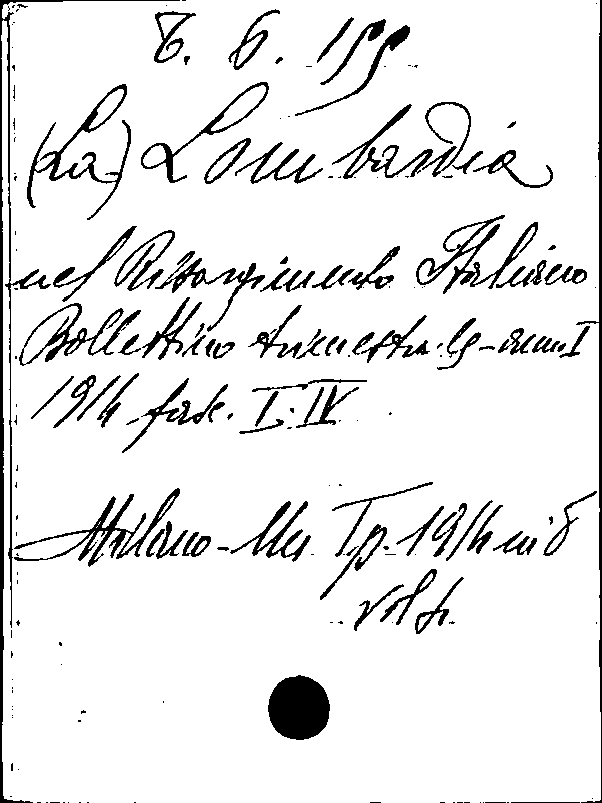 8. 6. 155
(La) Lombardia
nel Risorgimento Italiano
Bollettino trimestrale - anno I
1914 fasc. I-IV
Milano - Tip. 1914 in 8
vol